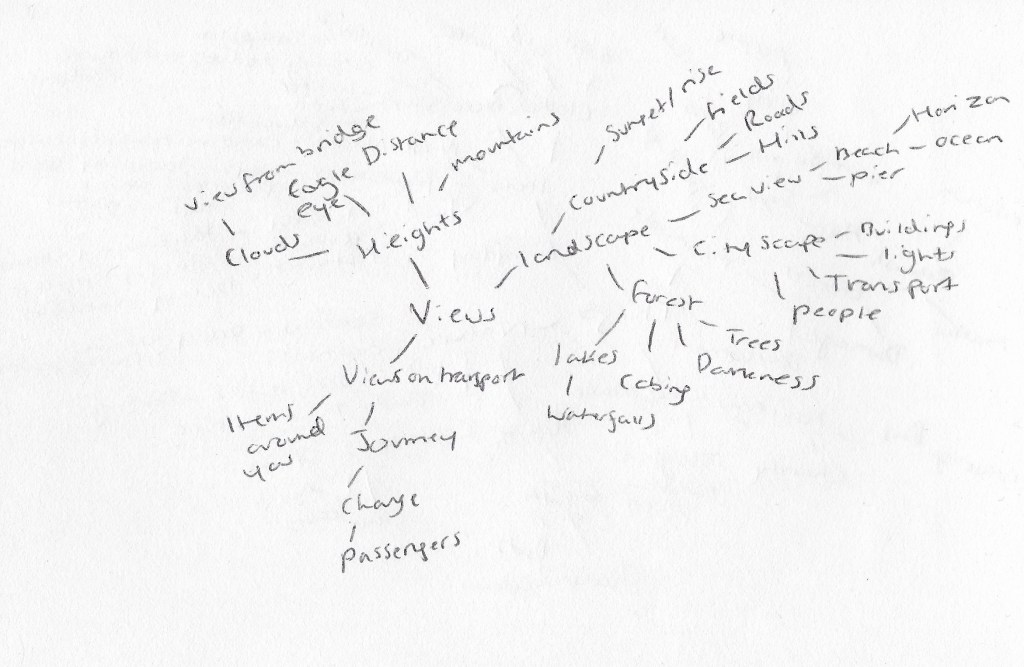 View from bridge
Eagle
eye
Distance
mountains
Sunset/rise
fields
Roads
Hills
Horizon
Beach - ocean
pier
Sea view
Countryside
Clouds
Heights
landscape
City scape
Buildings
lights
Transport
people
Views
Forest
Trees
Darkness
lakes
Waterfalls
Views on transport
Items
around
you
Journey
Change
passengers